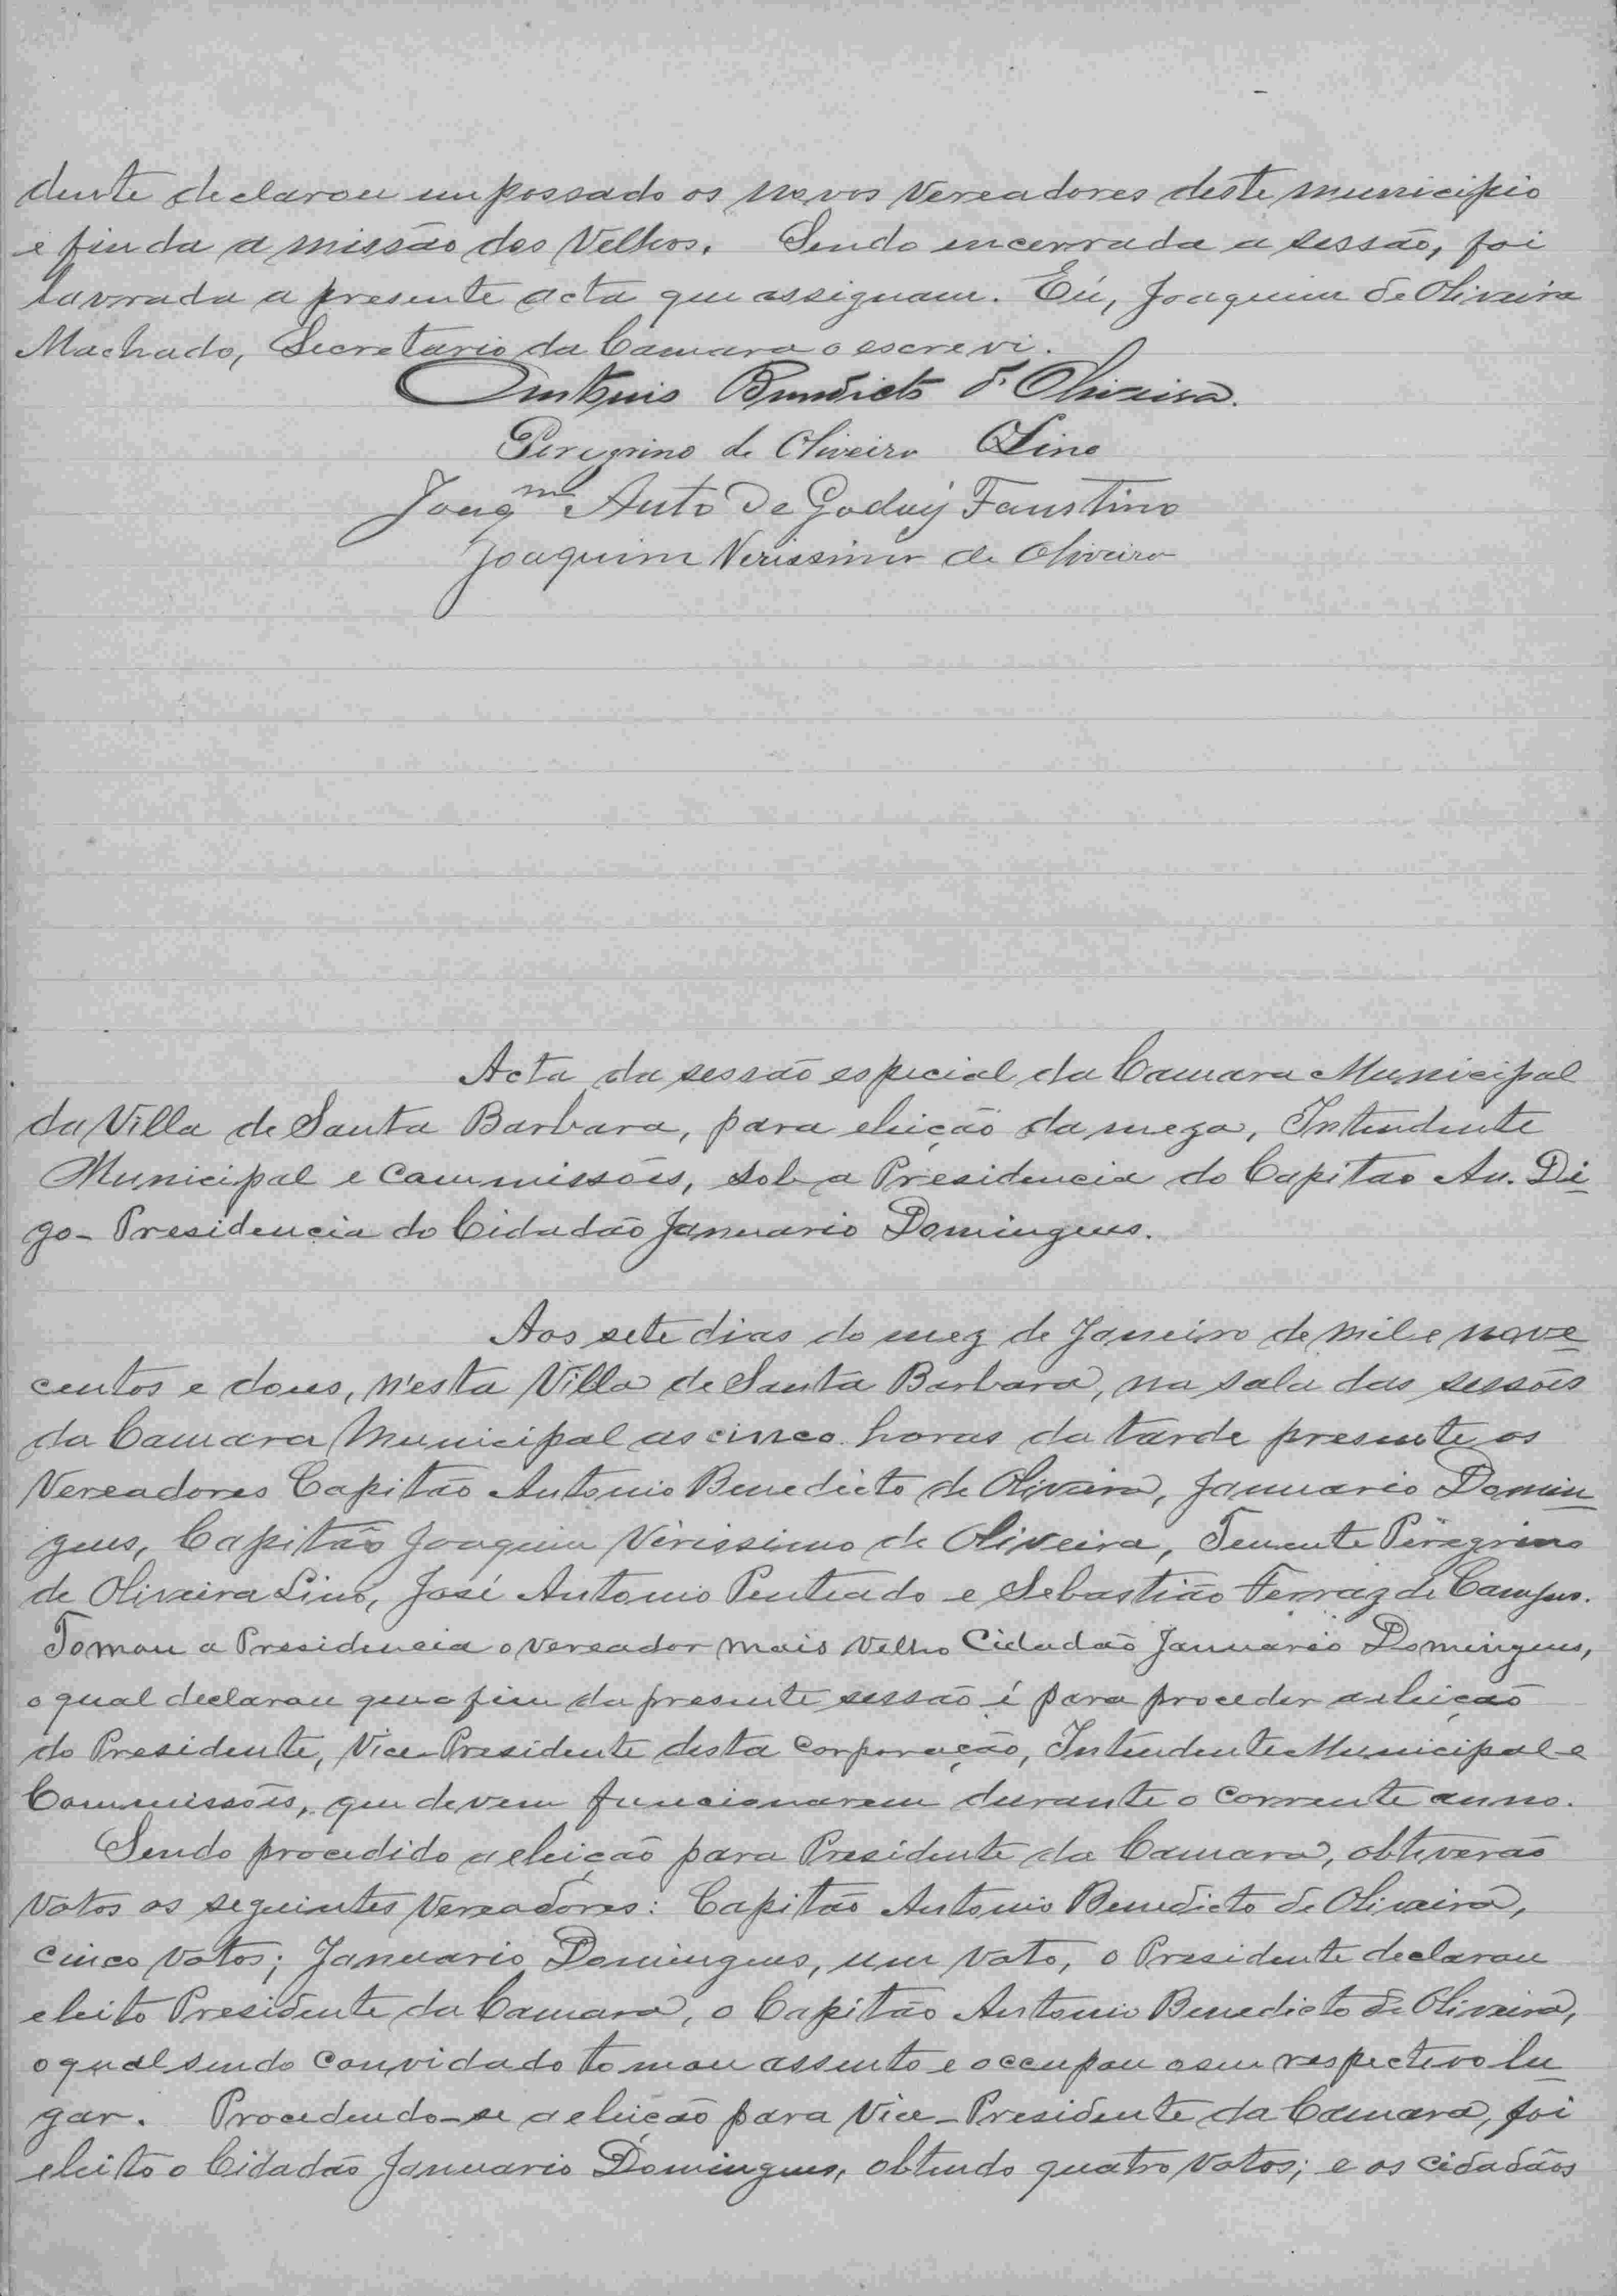 dente declarou empossado os novos Vereadores deste municipio
e finda a missão dos Velhos. Sendo encerrada a sessão, foi
lavrada a presente acta que assignam. Eú, Joaquim de Oliveira
Machado, Secretario da Camara o escrevi.
Antonio Benedicto d' Oliveira.
Peregrino de Oliveira Lino
Joaqm Anto de Godoy Faustino
Joaquim Verissimo de Oliveira
Acta da sessão especial da Camara Municipal
da Villa de Santa Barbara, para eleição da meza, Intendente
Municipal e Commissões, sob a Presidencia do Capitão An. Di
go - Presidencia do Cidadão Januario Domingues.
Aos sete dias do mez de Janeiro de mil e nove
centos e dous, n'esta Villa de Santa Barbara, na sala das sessões
da Camara Municipal as cinco horas da tarde presente os
Vereadores Capitão Antonio Benedicto de Oliveira, Januario Domin
gues, Capitão Joaquim Virissimo de Oliveira, Tenente Peregrino
de Oliveira Lino, José Antonio Penteado e Sebastião Ferraz de Campos.
Tomou a Presidencia o vereador mais velho Cidadão Januario Domingues,
o qual declarou que o fim da presente sessão é para proceder a eleição
do Presidente, Vice-Presidente desta corporação, Intendente Municipal e
Commissões, que devem funcionarem durante o corrente anno.
Sendo procedido a eleição para Presidente da Camara, obtiverão
votos os seguintes Vereadores: Capitão Antonio Benedicto de Oliveira,
cinco votos; Januario Domingues, um voto, o Presidente declarou
eleito Presidente da Camara, o Capitão Antonio Benedicto de Oliveira,
o qual sendo convidado tomou assento e occupou o seu respectivo lu
gar. Procedendo-se a eleição para Vice-Presidente da Camara, foi
eleito o Cidadão Januario Domingues, obtendo quatro votos; e os cidadãos